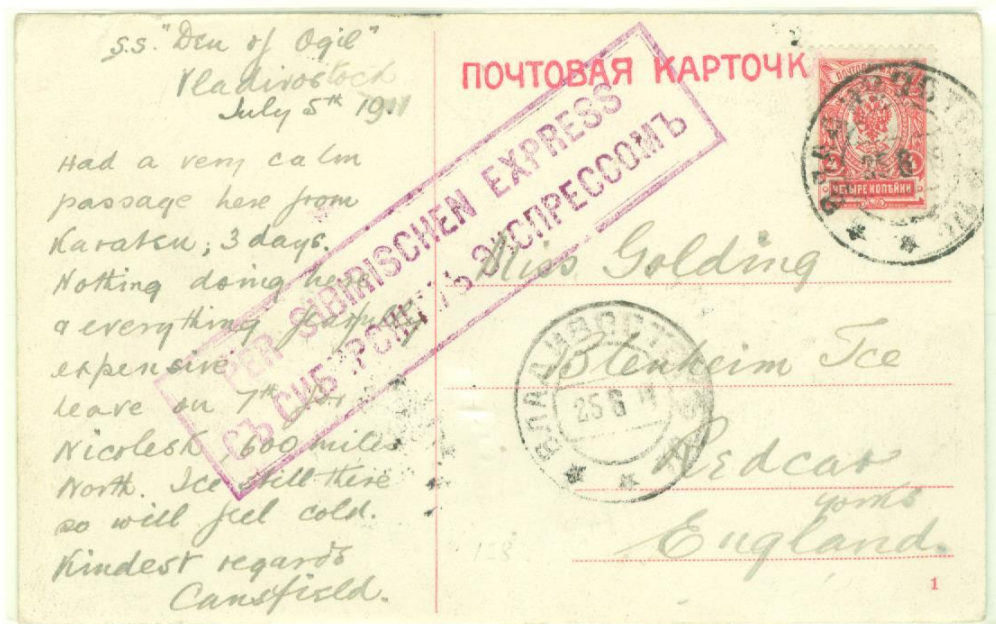 S.S. "Den of Ogil"
Vladivostock
July 5th 1911
Had a very calm
passage here from
Karatsu, 3 days.
Nothing doing here
& everything fearfully
expensive.
Leave on 7th for
Nicolesk 600 miles
North. Ice still there
so will feel cold.
Kindest regards
Cansfield.
ПОЧТОВАЯ КАРТОЧК
PER SIBIRISCHEN EXPRESS
СЪ СИБИРСКИМЪ ЭКСПРЕССОМЪ
ЧЕТЫРЕ КОПѢЙКИ
ВЛАДИВОСТОКЪ
25 6
Miss Golding
Blenheim Tce
Redcar
Yorks
England.
ВЛАДИВОСТОКЪ
25 6 11
128
1